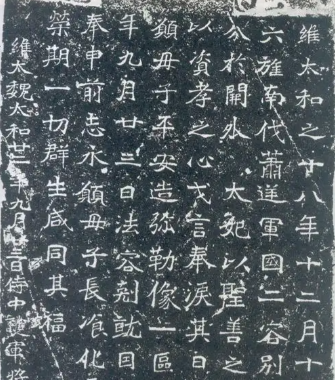 維太和之十八年十二月十
六旌南伐蕭逆軍國二容別
於開外太妃以聖善之
以資孝之心戈言奉淚其日
願母子平安造弥勒像一區
年九月廿三日法容剋就因
奉申前志永願母子長飡化
榮期一切群生咸同其福
維太魏太和廿二年九月廿三日侍中護軍將